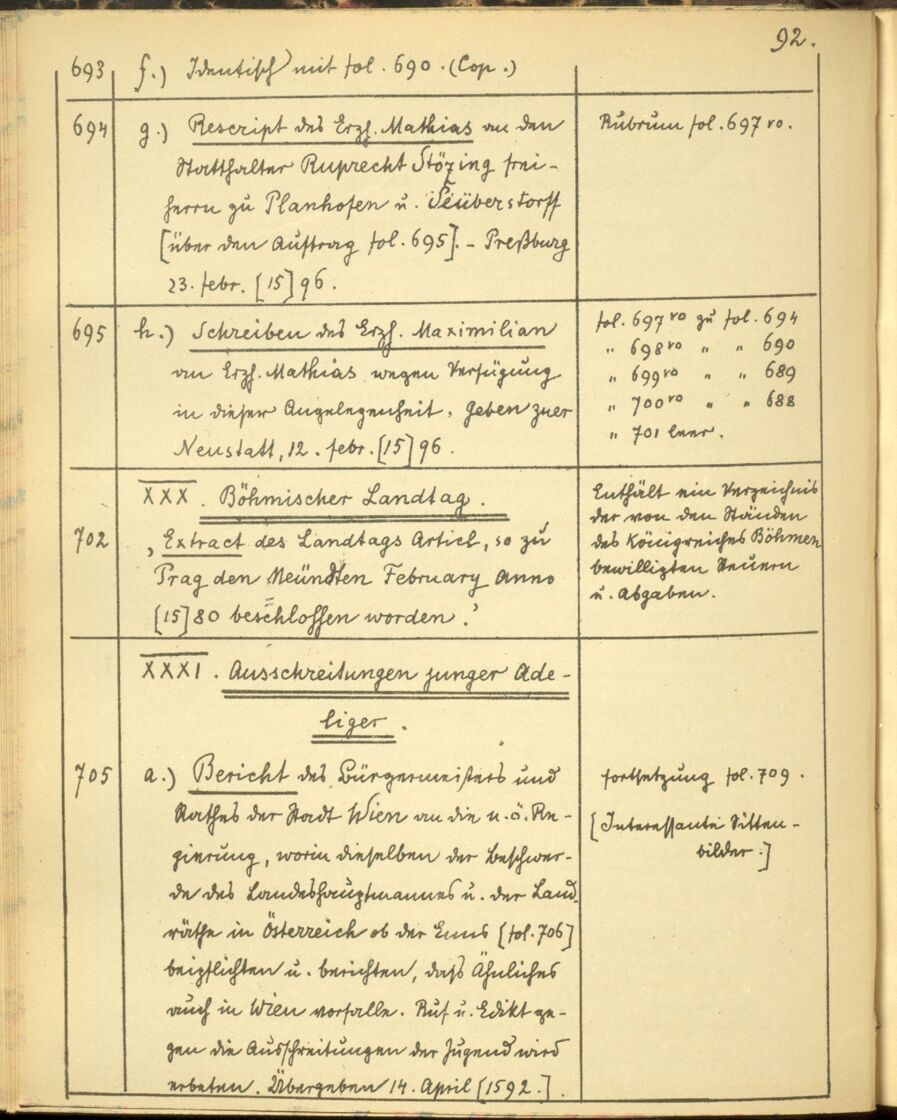 92.
693 f.) Identisch mit fol. 690. (Cop.)
694 g.) Rescript des Erzh. Mathias an den
Statthalter Ruprecht Stözing frei-
herrn zu Planhofen u.
[über den Auftrag fol. 695]. - Preßburg
23. febr. [15]96.
Rubrum fol. 697 vo.
695 h.) Schreiben des Erzh. Maximilian
an Erzh. Mathias wegen Verfügung
in dieser Angelegenheit. Geben zuer
Neustatt, 12. febr. [15]96.
fol. 697 vo zu fol. 694
" 698 vo " " 690
" 699 vo " " 689
" 700 vo " " 688
" 701 leer.
XXX. Böhmischer Landtag.
702 "Extract des Landtags Articl, so zu
Prag den Neündten February Anno
[15]80 beschlossen worden."
Enthält ein Verzeichnis
der von den Ständen
des Königreiches Böhmen
bewilligten Steuern
u. Abgaben.
XXXI. Ausschreitungen junger Ade-
liger.
705 a.) Bericht des Bürgermeisters und
Rathes der Stadt Wien an die n. ö. Re-
gierung, worin dieselben der Beschwer-
de des Landeshauptmannes u. der Land
räthe in Österreich ob der Enns [fol. 706]
beipflichten u. berichten, dass Ähnliches
auch in Wien vorfalle. Ruf u. Edikt ge-
gen die Ausschreitungen der Jugend wird
erbeten. Übergeben 14. April [1592.].
fortsetzung fol. 709.
[Interessante Sitten-
bilder.]